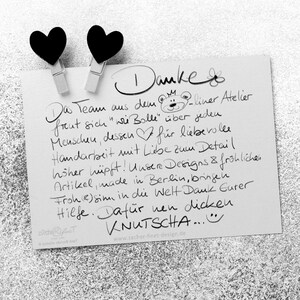 Danke
Das Team aus dem -liner Atelier
freut sich "wie Bolle" über jeden
Menschen, dessen für liebevolle
Handarbeit mit Liebe zum Detail
höher hüpft! Unsere Designs & fröhlichen
Artikel, made in Berlin, bringen
Froh(e)sinn in die Welt. Dank Eurer
Hilfe. Dafür nen dicken
KNUTSCHA...